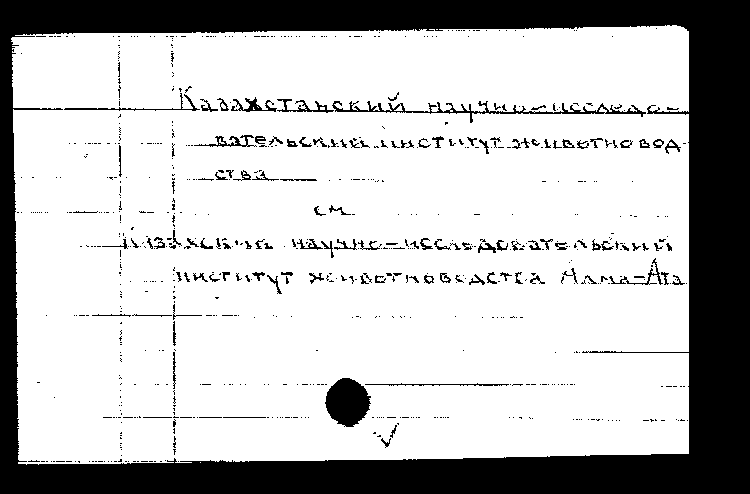 Казахстанский научно-исследо-
вательский институт животновод-
ства
см
Казахский научно-исследовательский
институт животноводства Алма-Ата